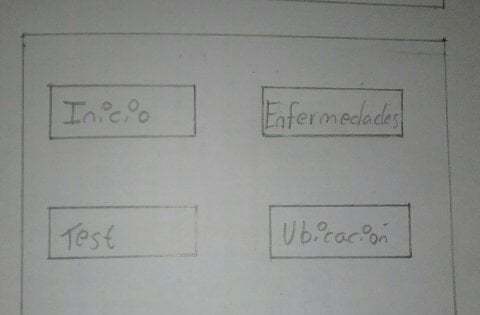 Inicio
Enfermedades
Test
Ubicación